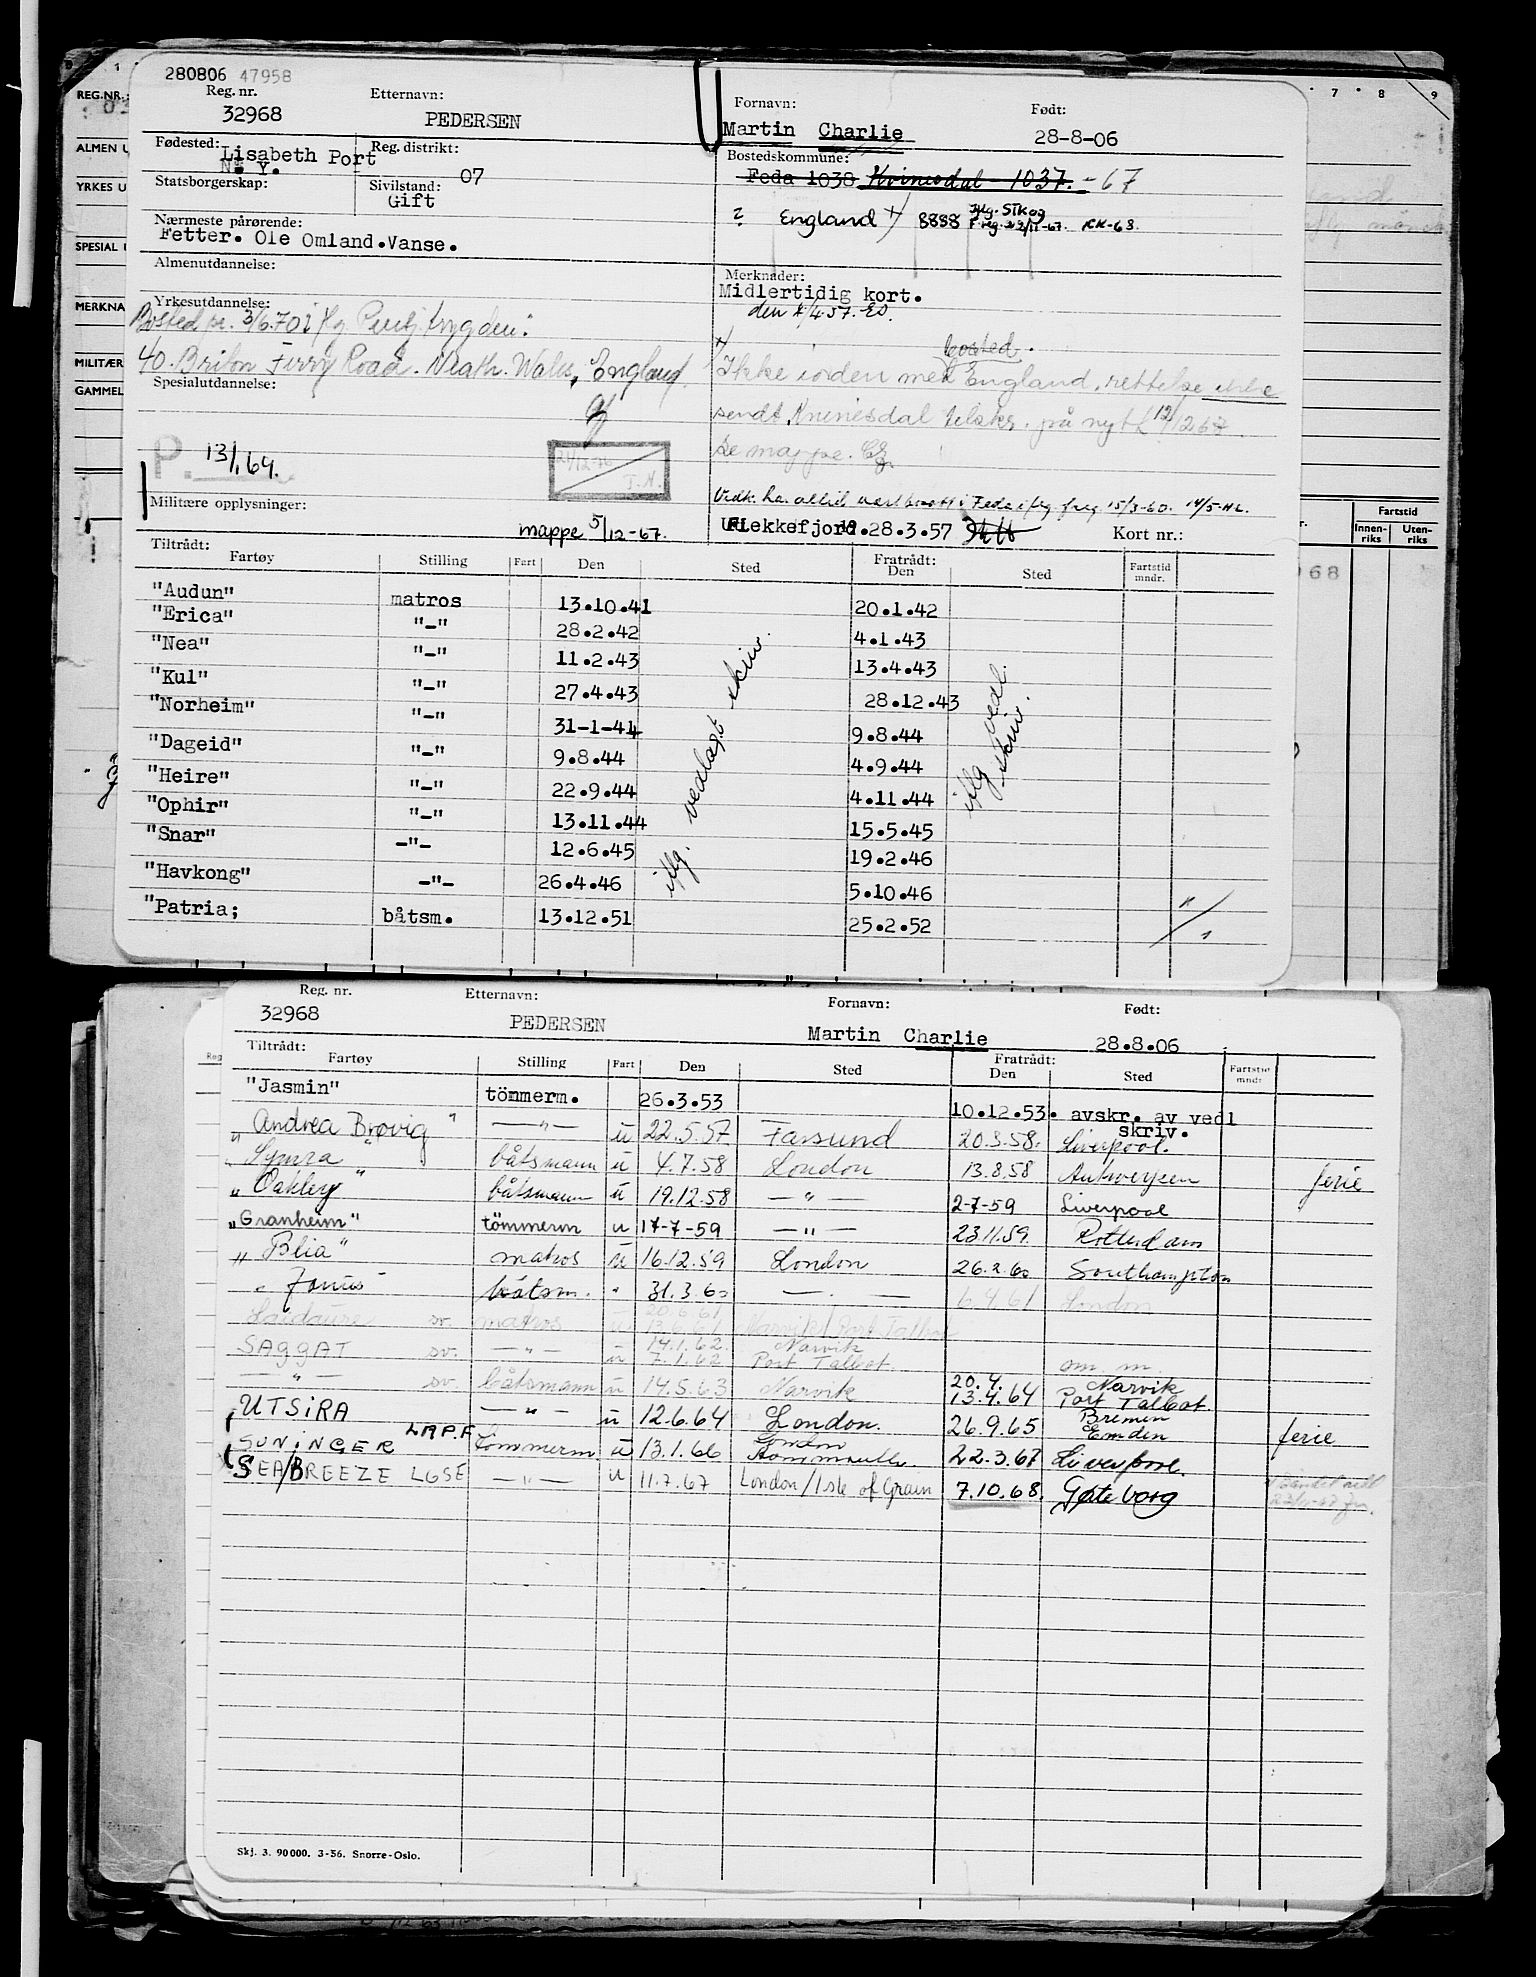 280806 47958
Reg. nr. Etternavn: Fornavn: Født:
32968 PEDERSEN Martin Charlie 28-8-06
Fødested: Lisabeth Port N. Y. Reg. distrikt: 07 Bostedskommune:
Feda 1038 Kvinesdal - 1037. - 67
Statsborgerskap: Sivilstand: Gift
? England x/ 8888
RK-68.
Nærmeste pårørende:
Fetter. Ole Omland. Vanse.
Almenutdannelse:
Merknader:
Midlertidig kort.
Yrkesutdannelse:
Bosted pr. 3/6.70
40. Briton Ferry Road. Neath. Wales, England
bosted.
Ikke iorden med England, rettelse
sendt Kvinesdal på nytt
se mappe.
Spesialutdannelse:
P. 13/1.69.
Militære opplysninger:
mappe 5/12-67.
Vedk. har alltid vært bosatt i Feda 15/3-60. 14/5-
Flekkefjord.28.3.57 Kort nr.:
Tiltrådt: Fratrådt:
Fartøy Stilling Fart Den Sted Den Sted Fartstid mndr.
"Audun" matros 13.10.41 20.1.42
"Erica" "-" 28.2.42 4.1.43
"Nea" "-" 11.2.43 13.4.43
"Kul" "-" 27.4.43 28.12.43
"Norheim" "-" 31-1-44 9.8.44
"Dageid" "-" 9.8.44 4.9.44
"Heire" "-" 22.9.44 4.11.44
"Ophir" "-" 13.11.44 15.5.45
"Snar" -"- 12.6.45 19.2.46
"Havkong" -"- 26.4.46 5.10.46
"Patria; båtsm. 13.12.51 25.2.52
iflg. vedlagt skriv.
iflg vedl. skriv.
REG.NR.
ALMEN U
YRKES U
SPESIAL U
MERKNA
MILITÆR
GAMMEL
7 8 9
Fartstid
Innenriks Utenriks
Reg. nr. Etternavn: Fornavn: Født:
32968 PEDERSEN Martin Charlie 28.8.06
Tiltrådt: Fratrådt:
Fartøy Stilling Fart Den Sted Den Sted Fartstid mndr
"Jasmin" tömmerm. 26.3.53 10.12.53. avskr. av vedl skriv.
"Andrea Brøvig" -"- u 22.5.57 Farsund 20.3.58. Liverpool.
"Symra" båtsmann u 4.7.58 London 13.8.58 Antwerpen ferie
"Oakley" båtsmann u 19.12.58 -"- 2-7-59 Liverpool
"Granheim" tömmerm u 17-7-59 -"- 23.11.59. Rotterdam
"Blia" matros u 16.12.59 London 26.2.60 Southampton
"Janus" båtsm. " 31.3.60 - " - 6.4.61 London
Laidaure sv. matros u 20.6.61 13.6.61 Narvik/Port Talbot
SAGGAT sv. -"- u 14.1.62. 7.1.62 Narvik Port Talbot. om. m.
-"- sv. båtsmann u 14.5.63 Narvik 20.4. 13.4.64 Narvik Port Talbot
UTSIRA -"- u 12.6.64 London. 26.9.65 Bremen Emden ferie
SUNINGER LAPF Tömmerm. u 13.1.66 London 22.3.67 Liverpool.
SEA BREEZE LGSE -"- u 11.7.67 London/Isle of Grain 7.10.68. Gøteborg
Skj. 3. 90000. 3-56. Snorre-Oslo.